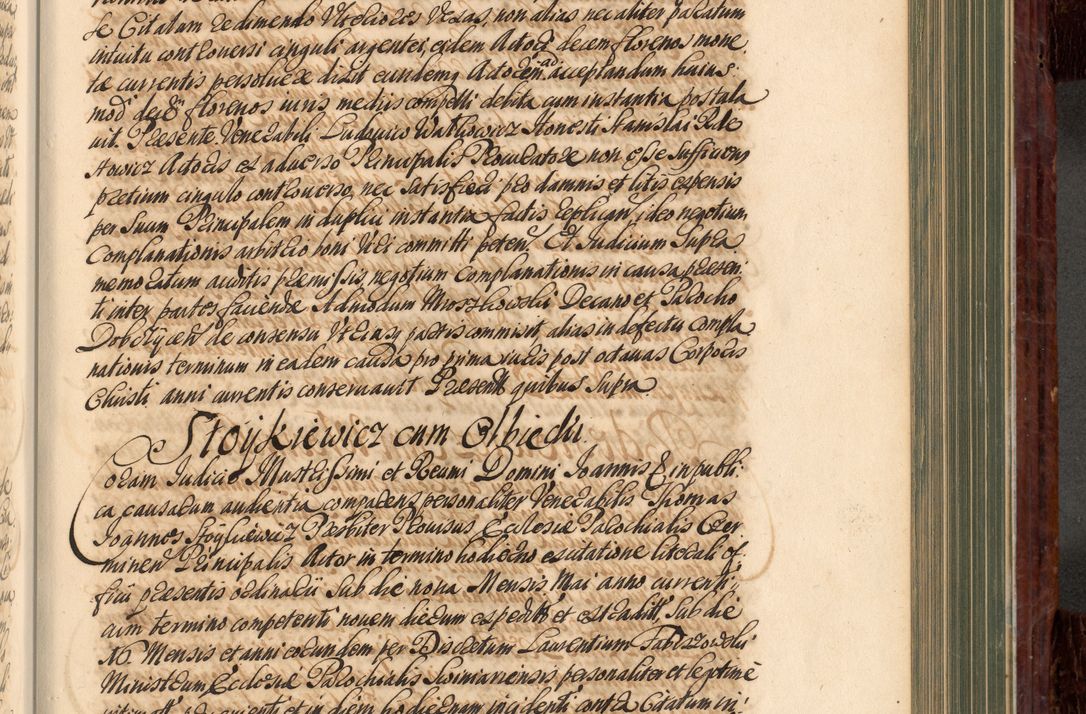 se Citatum redimendo melio res vexas, non alias nec aliter paratum
intuitu controversi cinguli argentei, eidem Actori decem florenos mone
tae currentis persolvere dixit eundemq Actorem ad acceptandum huius
modi decem florenos iuris mediis compelli debita cum instantia postula
vit. Presente Venerabili Ludovico Wathowicz Honesti Stanislai Rde
Actoris ex adverso Principalis Procuratore non esse sufficiens
pretium cingulo controverso, nec satisfieri pro damnis et litis expensis
per Suum Principalem in duplici instantia factis replican, ideo negotium
Complanationis arbitrio boni viri committi peten. Et Judicium Supra
memoratum auditis premissis, negotium complanationis in causa presen
ti inter partes faciendae Admodum Moszkowski Decano et Parocho
de consensu utriusq partis commisit, alias in defectu compla
nationis terminum in eadem causa pro prima iuris post octavas Corporis
Christi anni currentis conservavit Presentt quibus Supra.
Stoykiewicz cum Olbiedii.
Coram Judicio Illustrissimi et Reverendissimi Domini Joannis & in publi
ca causarum audientia comparens personaliter Venerabilis Thomas
Joannes Stoykiewicz Presbiter Provisus Ecclesiae Parochialis Czer
minen Principalis Actor in termino hodierno ex citatione literali of
ficii presentis ordinarii sub die nona Mensis Mai anno currenti
cum termino competenti novem dierum expeditt et extraditt, sub die
Mensis et anni eorundem per Discretum Laurentium
Ministrum Ecclesiae Parochialis personaliter et legitime
et in diem hodiernum incidenti contra Citatum in